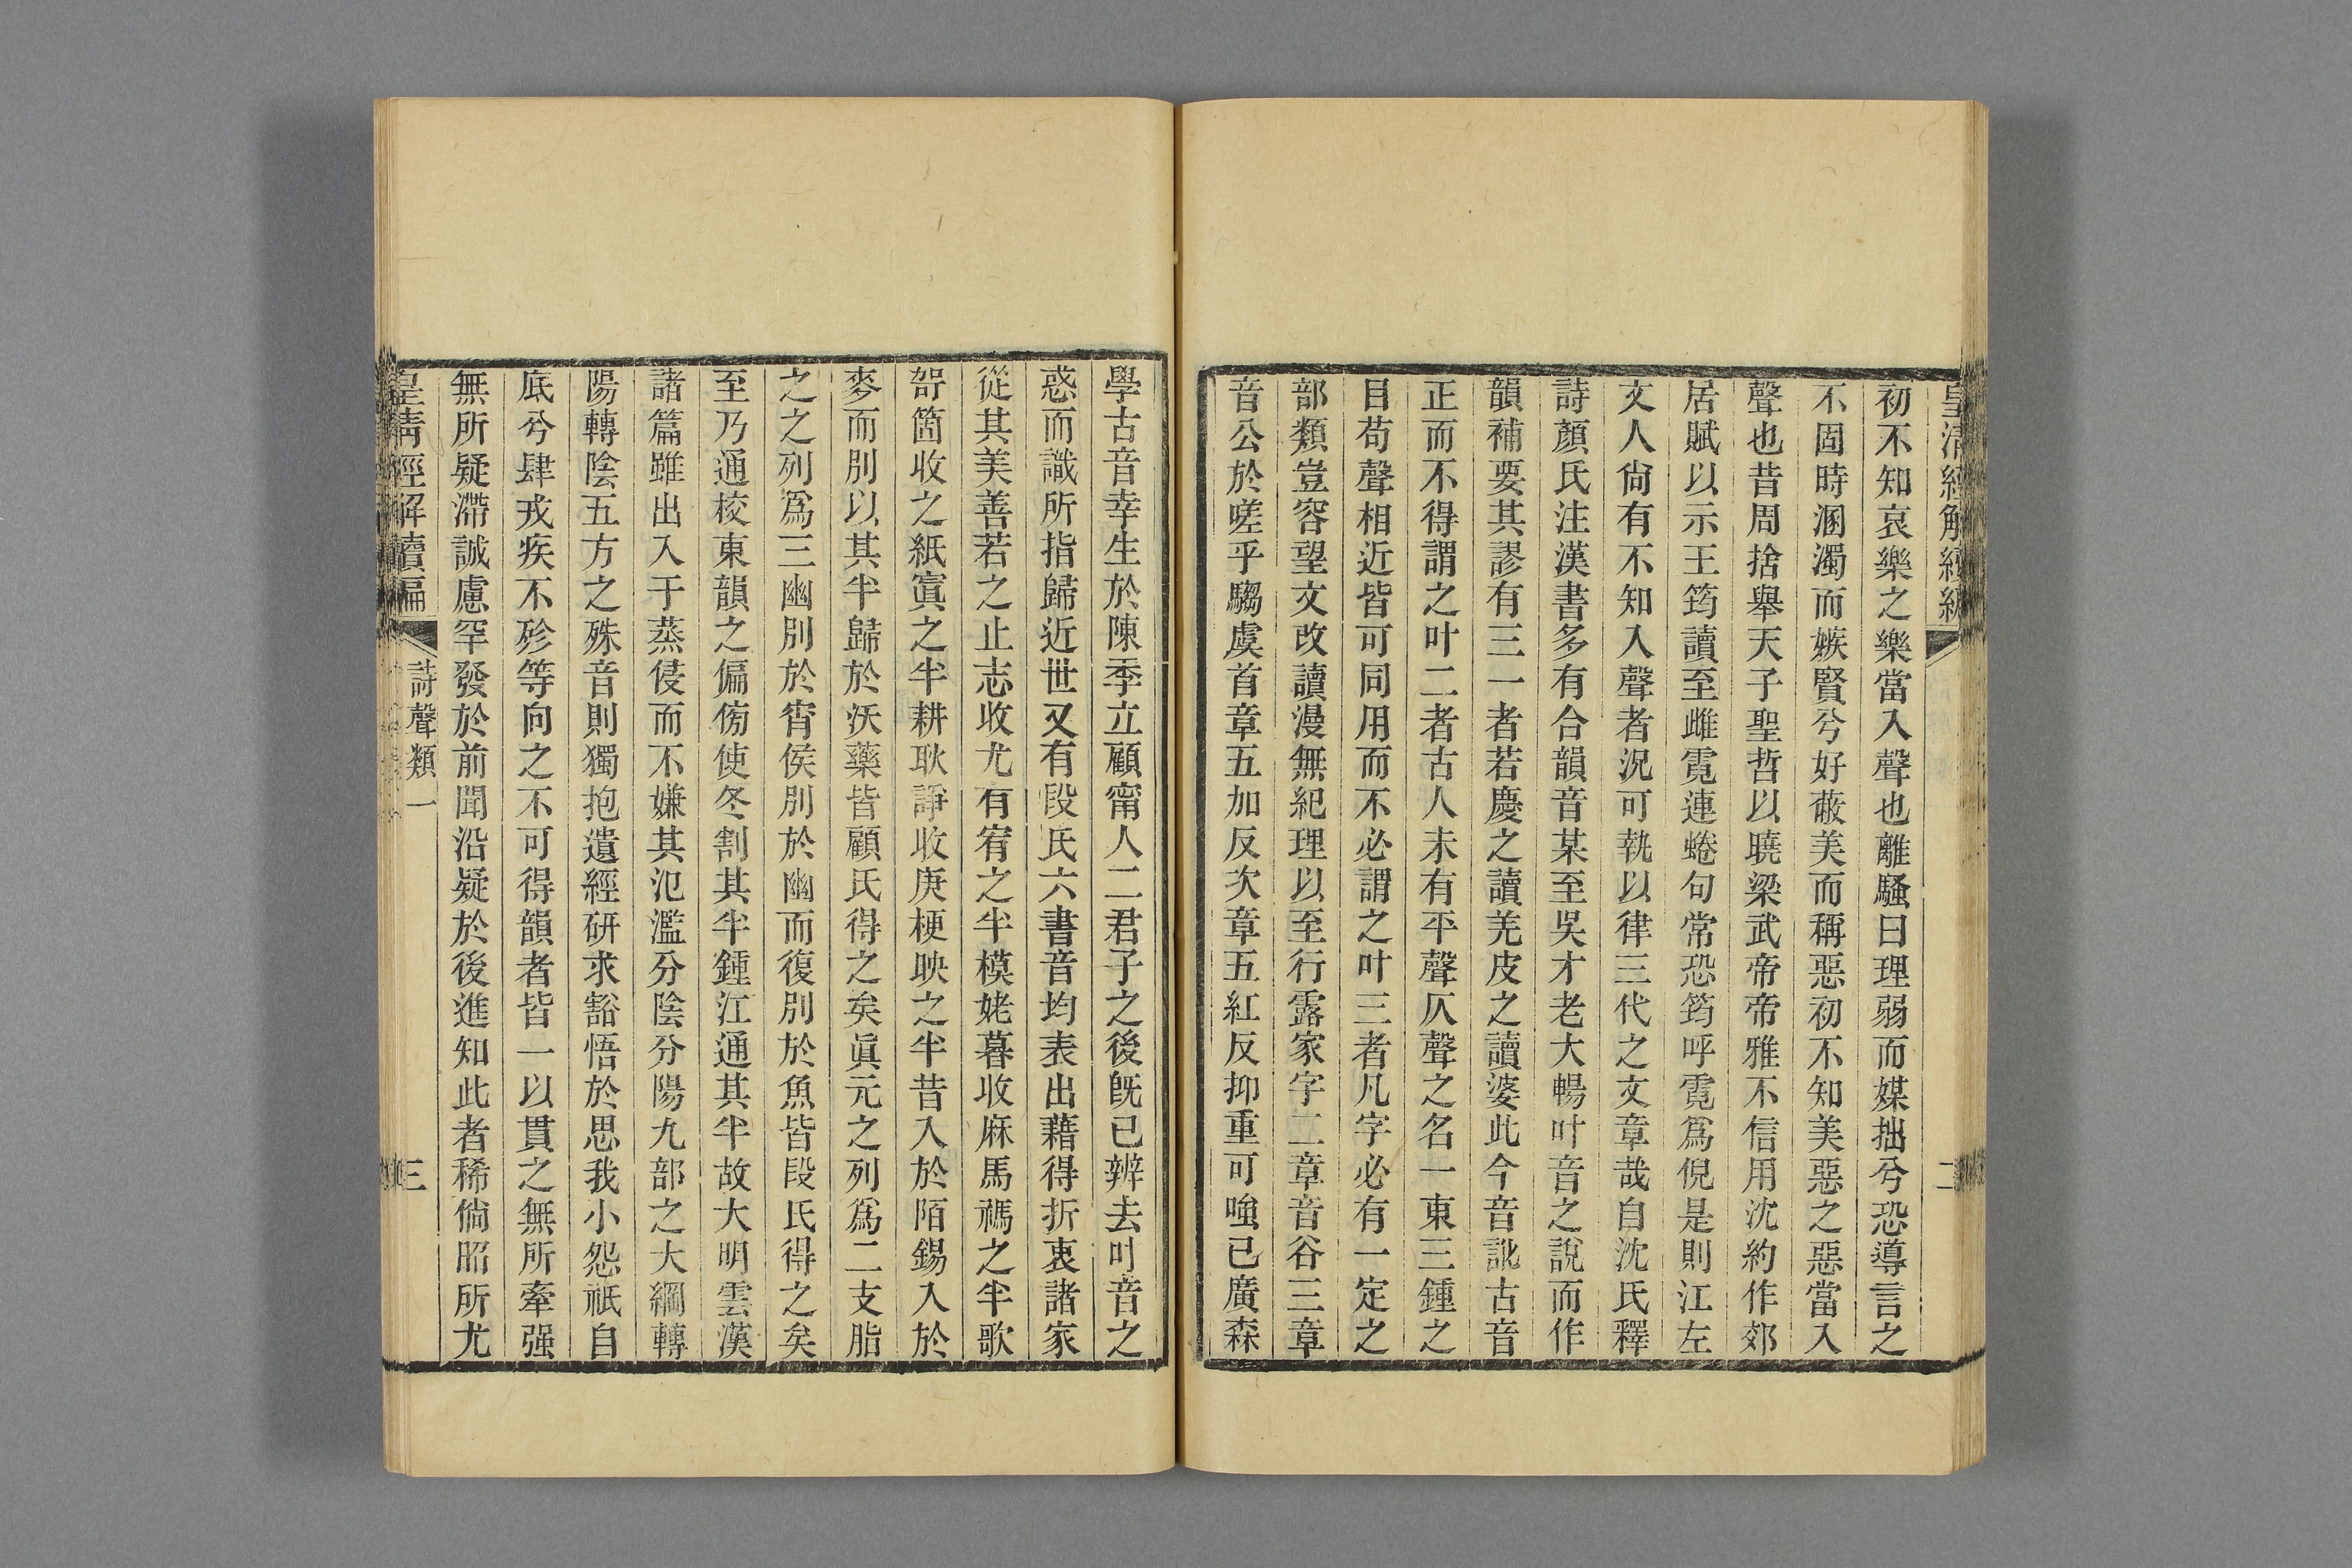 皇清經解續編
二
初不知哀樂之樂當入聲也離騷曰理弱而媒拙兮恐導言之
不固時溷濁而嫉賢兮好蔽美而稱惡初不知美惡之惡當入
聲也昔周捨舉天子聖哲以曉梁武帝帝雅不信用沈約作郊
居賦以示王筠讀至雌霓連蜷句常恐筠呼霓爲倪是則江左
文人尙有不知入聲者況可執以律三代之文章哉自沈氏釋
詩顏氏注漢書多有合韻音某至吳才老大暢叶音之說而作
韻補要其謬有三一者若慶之讀羌皮之讀婆此今音訛古音
正而不得謂之叶二者古人未有平聲仄聲之名一東三鍾之
目苟聲相近皆可同用而不必謂之叶三者凡字必有一定之
部類豈容望文改讀漫無紀理以至行露家字二章音谷三章
音公於嗟乎騶虞首章五加反次章五紅反抑重可嗤已廣森
學古音幸生於陳季立顧甯人二君子之後旣已辨去叶音之
惑而識所指歸近世又有段氏六書音均表出藉得折衷諸家
從其美善若之止志收尤有宥之半模姥暮收麻馬禡之半歌
哿箇收之紙寘之半耕耿諍收庚梗映之半昔入於陌錫入於
麥而別以其半歸於沃藥皆顧氏得之矣眞元之列爲二支脂
之之列爲三幽別於宵侯別於幽而復別於魚皆段氏得之矣
至乃通校東韻之偏傍使冬割其半鍾江通其半故大明雲漢
諸篇雖出入于蒸侵而不嫌其氾濫分陰分陽九部之大綱轉
陽轉陰五方之殊音則獨抱遺經硏求豁悟於思我小怨祇自
底兮肆戎疾不殄等向之不可得韻者皆一以貫之無所牽强
無所疑滯誠慮罕發於前聞沿疑於後進知此者稀倘昭所尤
皇淸經解續編
詩聲類一
三